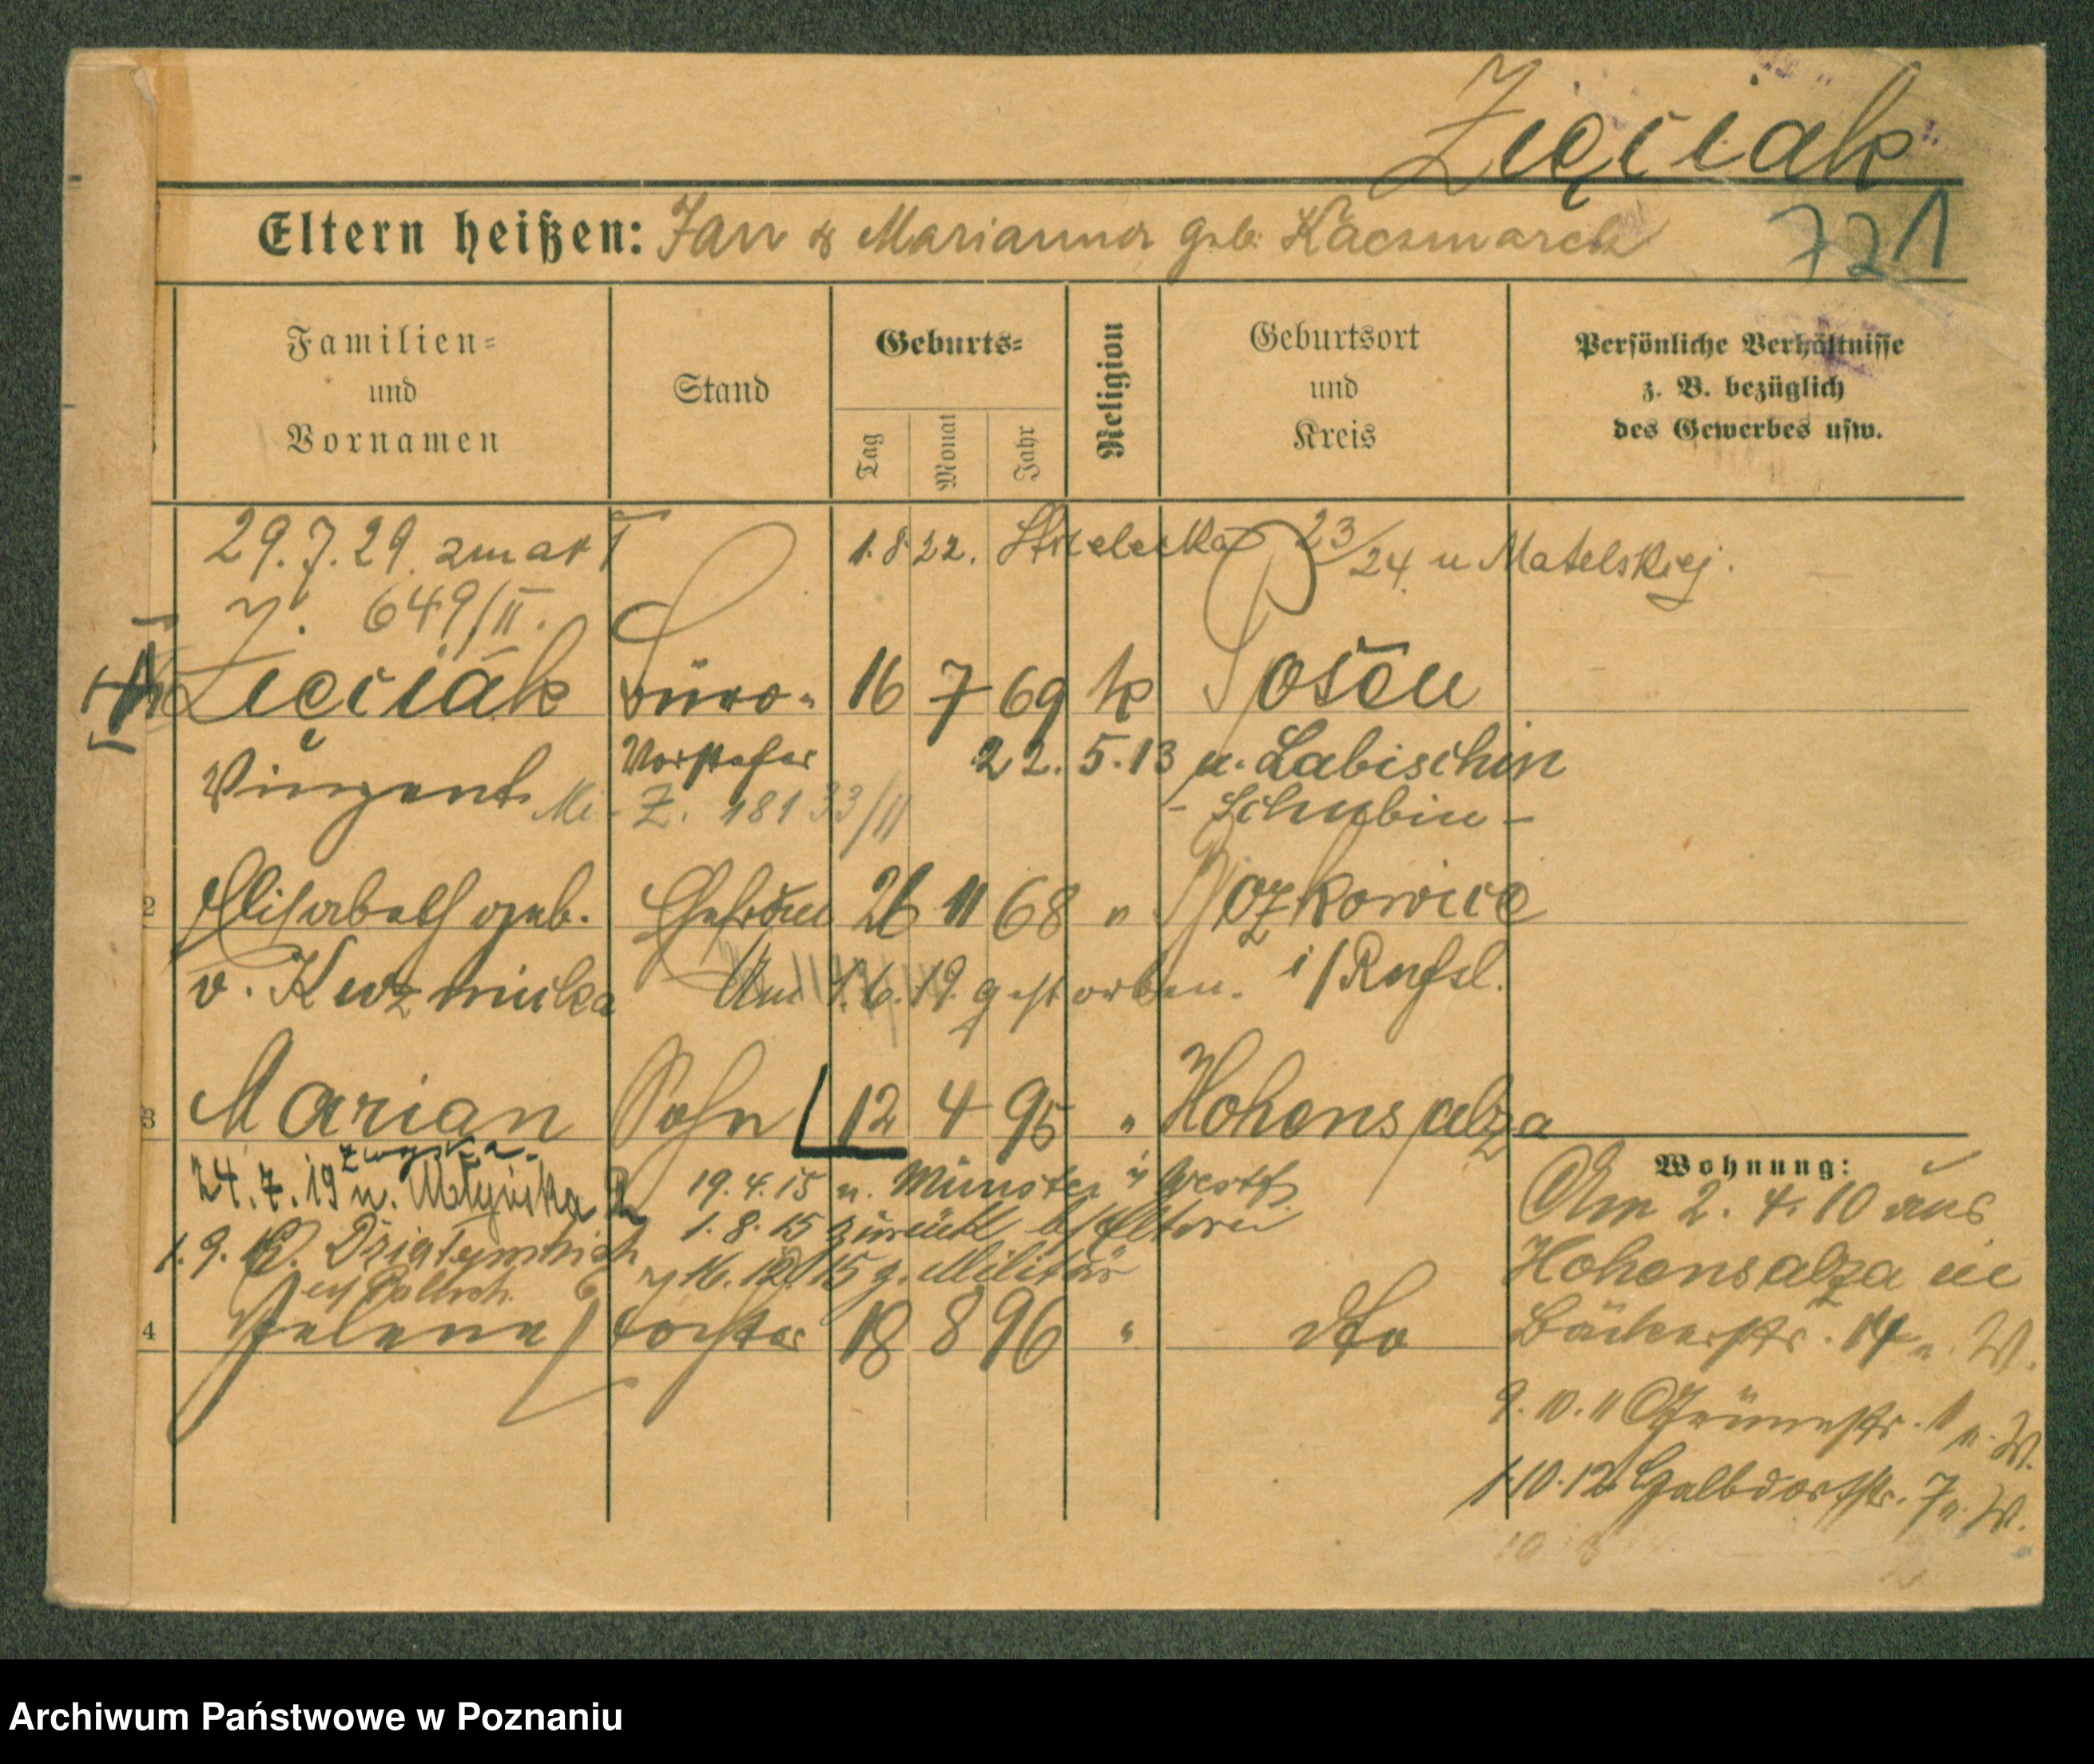 Zięciak
Eltern heißen: Jan & Marianna geb. Kaczmarek
721
Familien=
und
Vornamen
Stand
Geburts=
Tag
Monat
Jahr
Religion
Geburtsort
und
Kreis
Persönliche Verhältnisse
z. B. bezüglich
des Gewerbes usw.
29.7.29. zmarł
1.8.22. Strzelecka 23/24 u Matelskiej.
649/II.
Zięciak Büro- 16 7 69 k Posen
Vorsteher 22.5.13 n. Labischin
Vinzent Z. 18133/II - Schubin -
2 Elisabeth geb. Ehefrau 26 11 68 "
v. Kuzmicka Am 1.6.19. gestorben. i/Rußl.
3 Marian Sohn 12 4 95 " Hohensalza
24.7.19 n. 19.4.15 n. Münster i/Westf.
1.8.15 zurück b/Eltern
1.9. 16.12.15 z. Militär
4 Helene Tochter 18 8 96 " dto
Wohnung:
Am 2.4.10 aus
Hohensalza in
Bäckerstr. 14 n. W.
9.10.11 Grünestr. 1 n. W.
1.10.12 Halbdorfstr. 7 n. W.
Archiwum Państwowe w Poznaniu